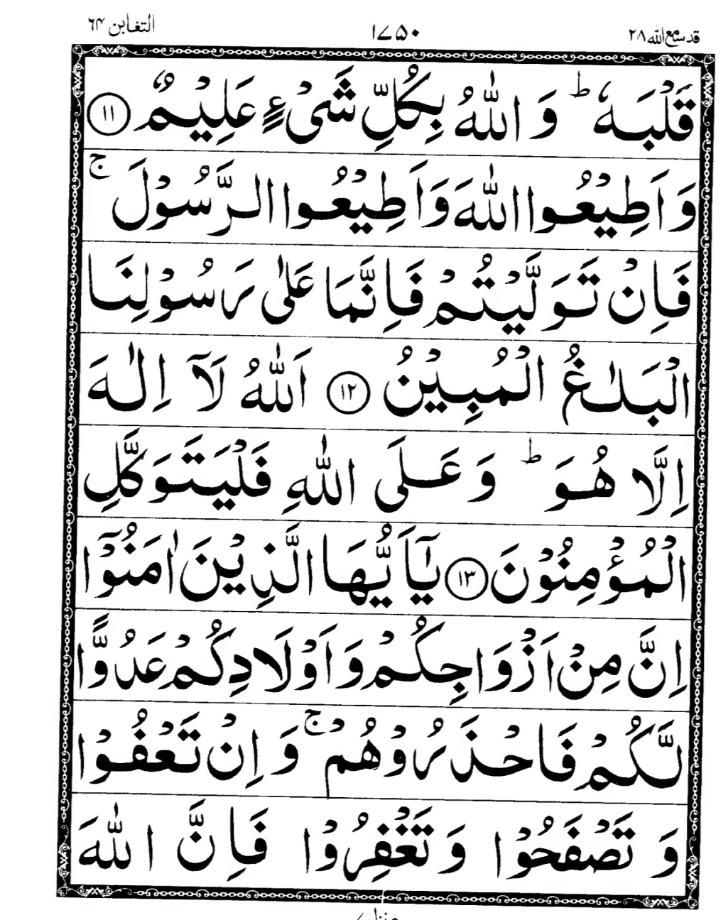 التغابن ٦٤ ١٧٥٠ قد سمع الله ٢٨
قَلْبَهٗ ؕ وَ اللّٰهُ بِكُلِّ شَیْءٍ عَلِیْمٌ ﴿۱۱﴾
وَ اَطِیْعُوا اللّٰهَ وَ اَطِیْعُوا الرَّسُوْلَ ۚ
فَاِنْ تَوَلَّیْتُمْ فَاِنَّمَا عَلٰی رَسُوْلِنَا
الْبَلٰغُ الْمُبِیْنُ ﴿۱۲﴾ اَللّٰهُ لَاۤ اِلٰهَ
اِلَّا هُوَ ؕ وَ عَلَی اللّٰهِ فَلْیَتَوَكَّلِ
الْمُؤْمِنُوْنَ ﴿۱۳﴾ یٰۤاَیُّهَا الَّذِیْنَ اٰمَنُوْۤا
اِنَّ مِنْ اَزْوَاجِكُمْ وَ اَوْلَادِكُمْ عَدُوًّا
لَّكُمْ فَاحْذَرُوْهُمْ ۚ وَ اِنْ تَعْفُوْا
وَ تَصْفَحُوْا وَ تَغْفِرُوْا فَاِنَّ اللّٰهَ